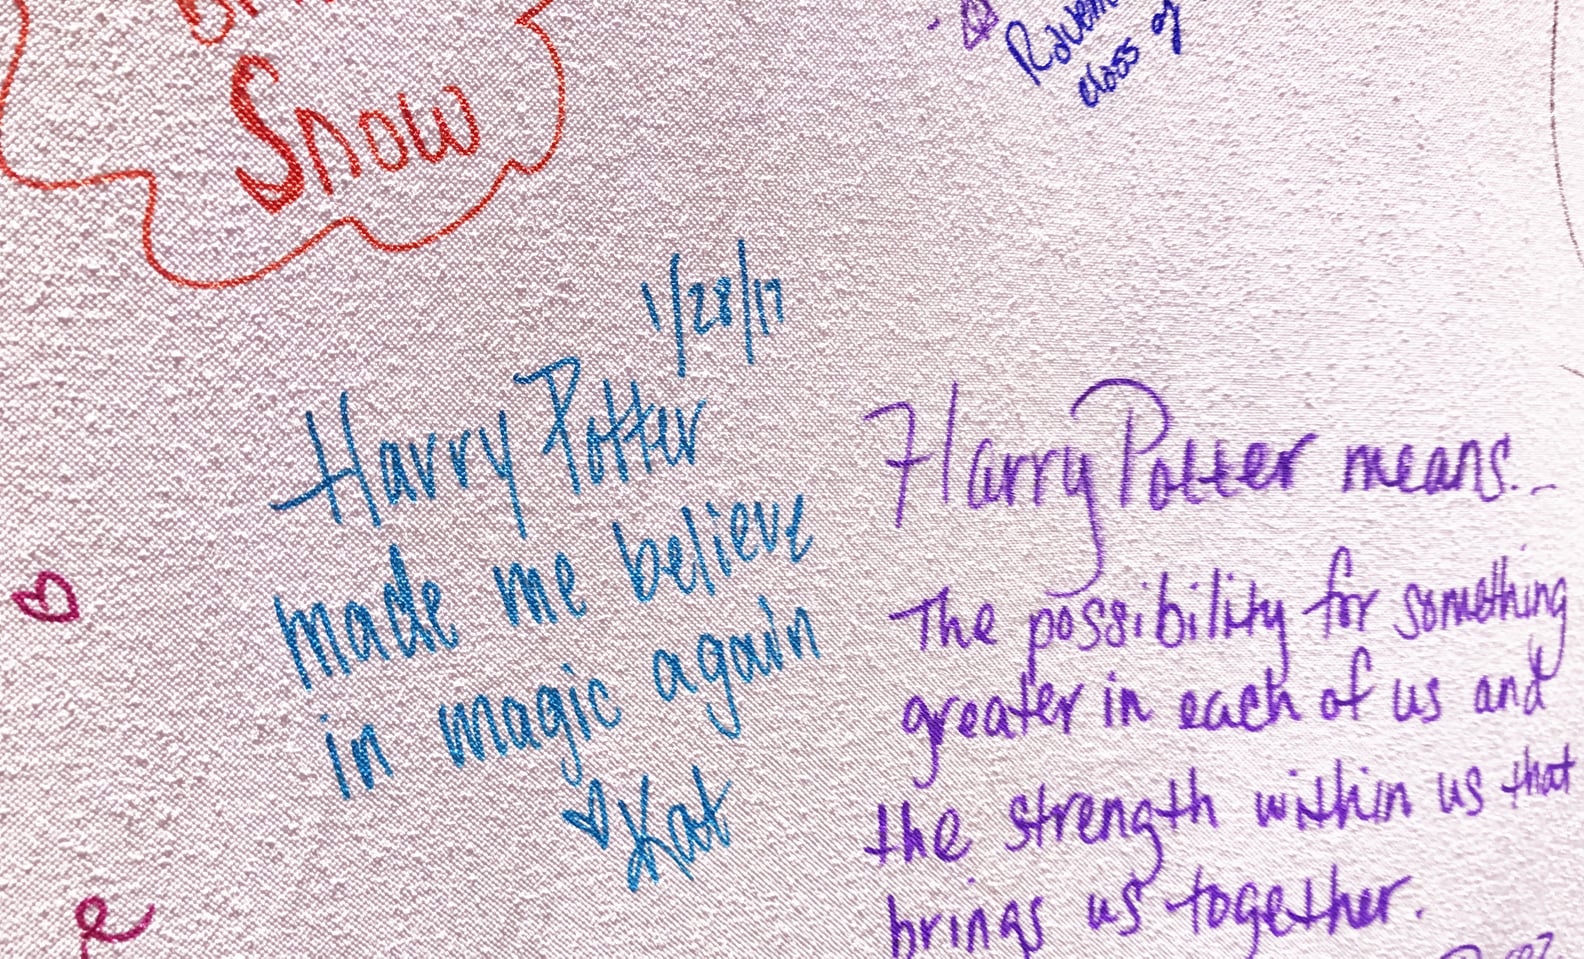 Snow
class of
1/28/17
Harry Potter
made me believe
in magic again
Kat
Harry Potter means...
The possibility for something
greater in each of us and
the strength within us that
brings us together.